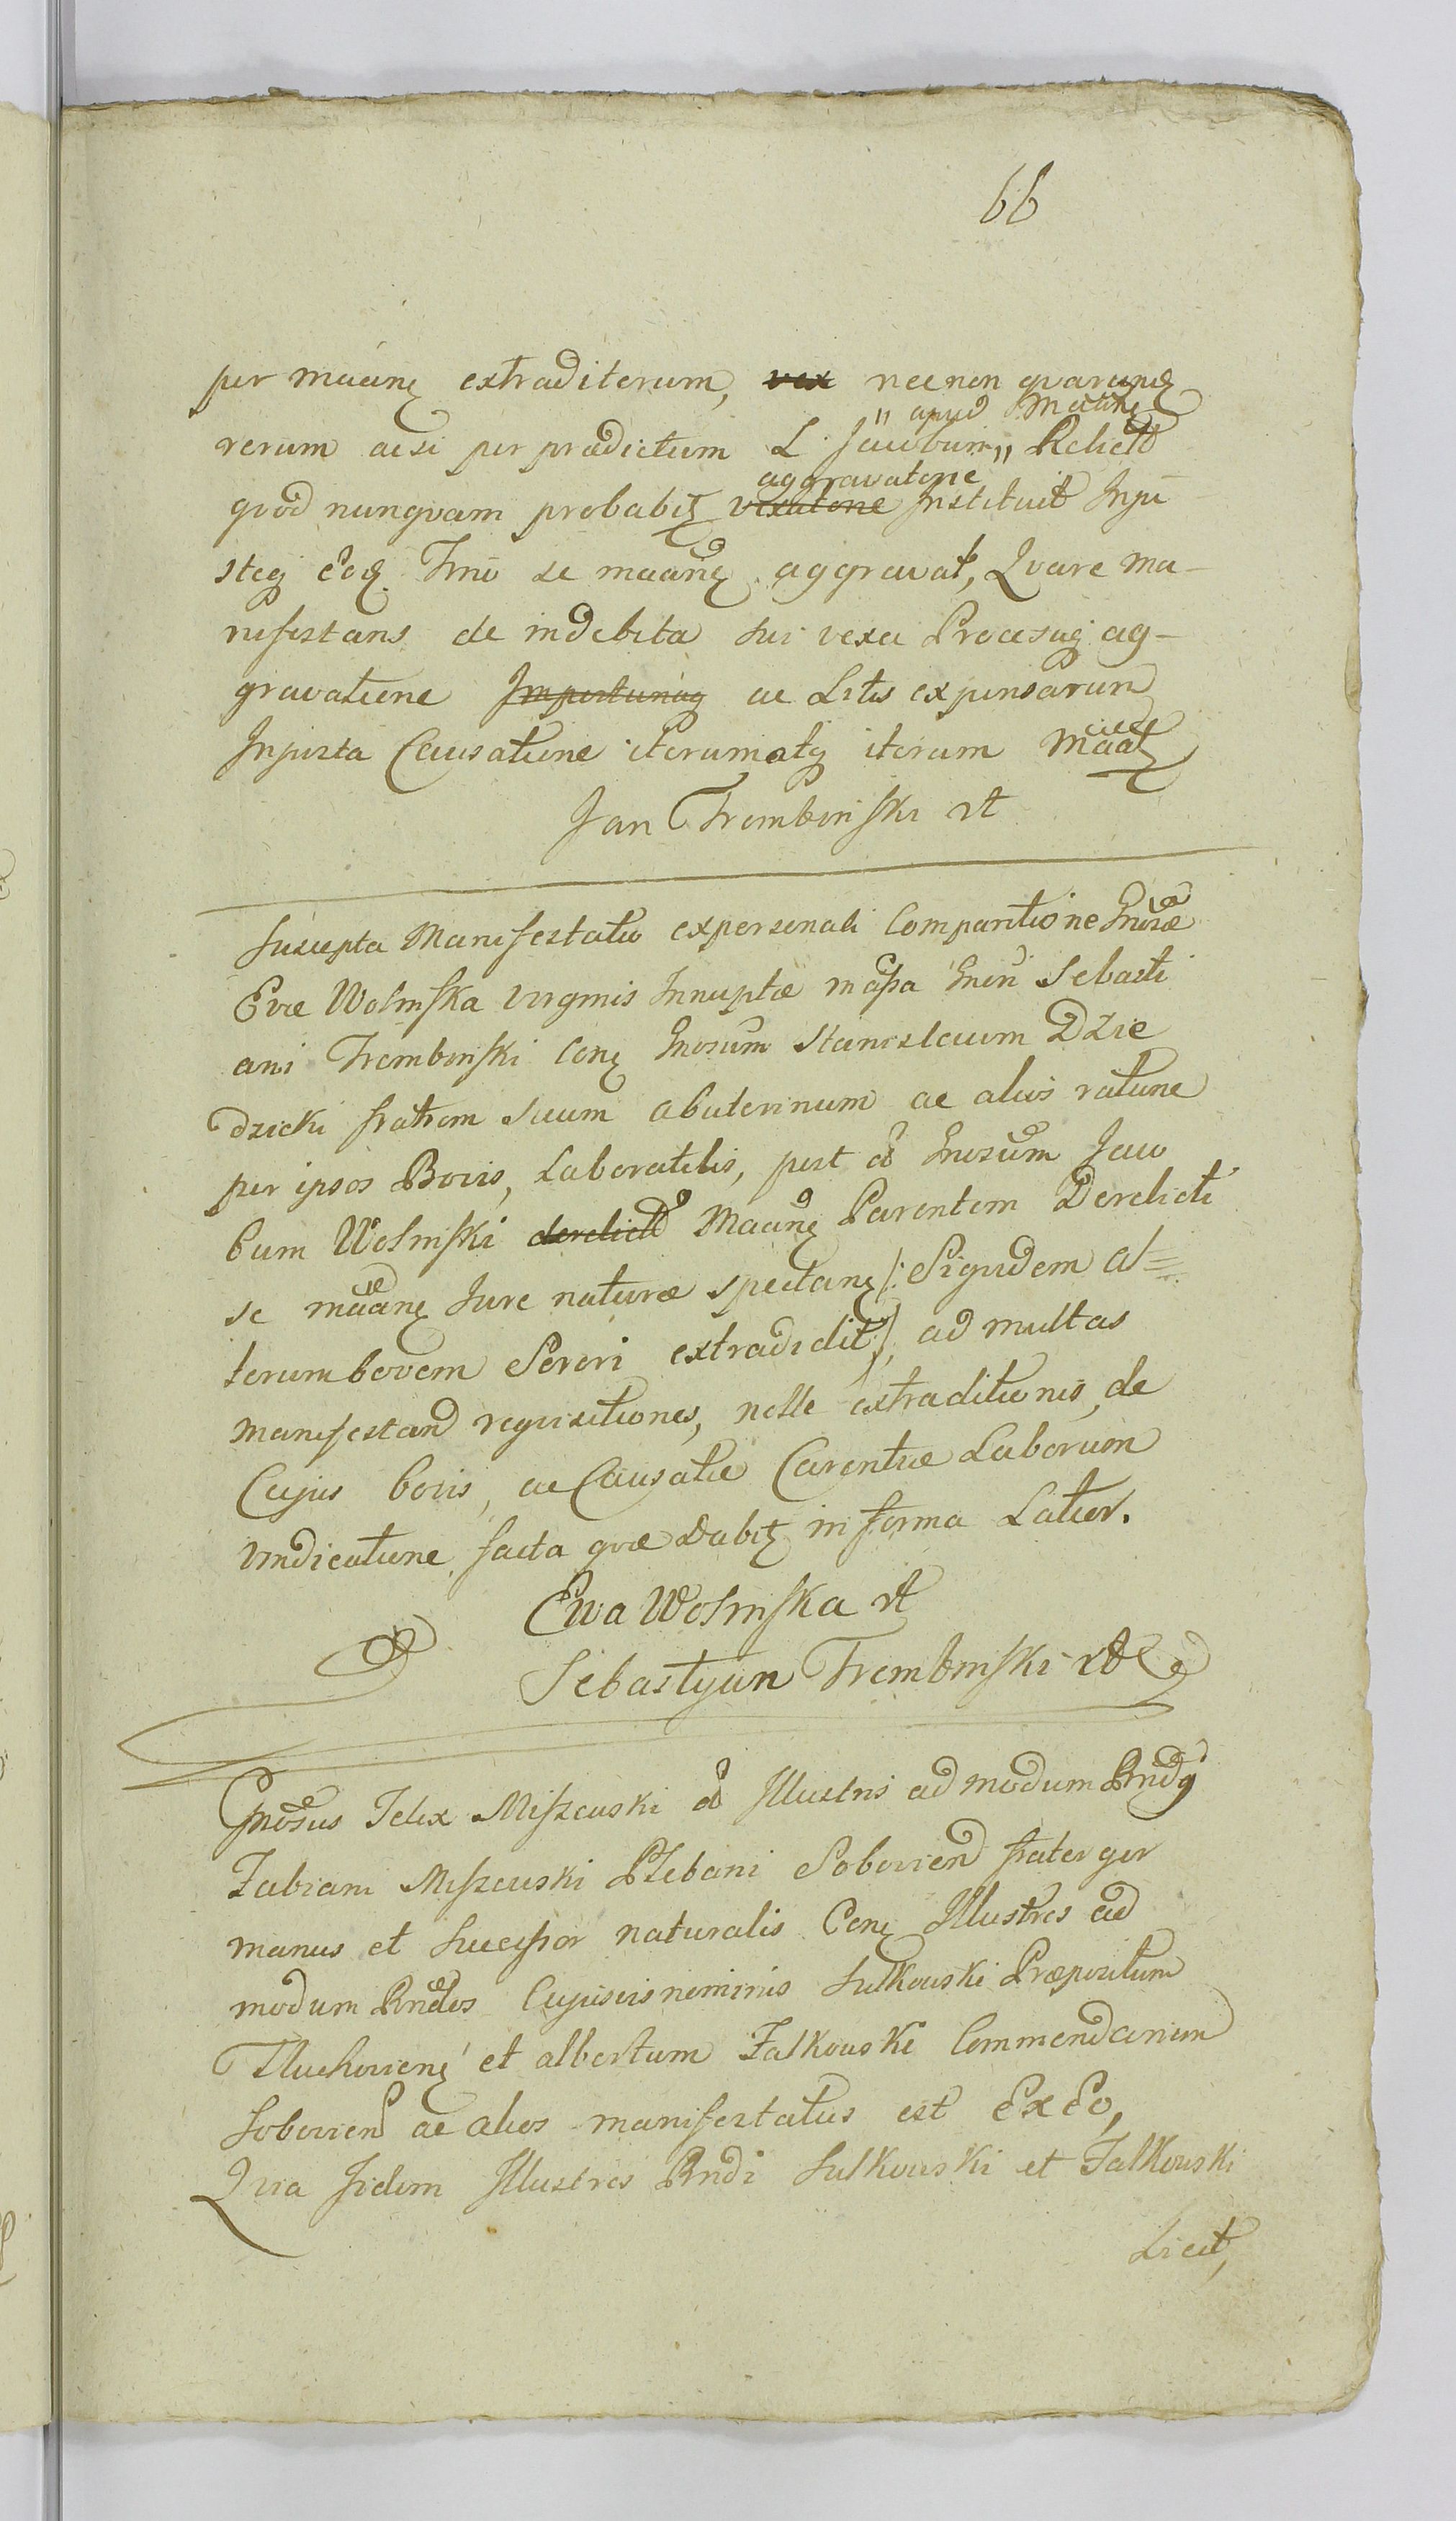 66
per maane extraditorum, vex necnon qvarunq
" apud Maane
rerum acsi per prædictum L. Jacobum " Relict
aggravatone
qvod nunqvam probabit vexatone Instituit Inju
steq eoq Trno se maane aggravat, Qvare ma-
nifestans de indebita sui vexa Procesuq ag-
gravatione Importunaq ac Litis expensarum
Injusta Causatione iterumatq iterum Maat
Jan Trembinski rt
Suscepta Manifestatio expersonali Comparitione Gnosæ
Evæ Wolinska virginis Innuptæ in assa Gnen Sebasti
ani Trembinski Conq Gnosum Stanislaum Dzie
dzicki fratrem suum abuterinum ac alios ratione
per ipsos Bovis, Laboratilis, post Gnosum Jaco
bum Wolinski derelict Maane Parentem Derelicti
se maane Jure naturæ spectane /: Siquidem al=
terum bovem Sorori extradidit :/, ad multas
manifestand reqvisitiones, nolle extraditionis, de
Cujus bovis, ac Causatæ Carentiæ Laborum
vindicatione facta qvæ dabit in forma Latior.
Ewa Wolinska rt
Sebastyan Trembinski rt
Gnosus Felix Miszewski Illustris admodum Rndi
Fabiani Miszewski Plebani Soboviend frater ger
manus et Successor naturalis Conq Illustres ad
modum Rndos Cujusvisnominis Sulkowski Præpositum
Tluchoviens et albertum Falkowski Commendarium
Soboviend ac alios manifestatus est Ex Eo,
Qvia Jidem Illustres Rndi Sulkowski et Falkowski
Licet,